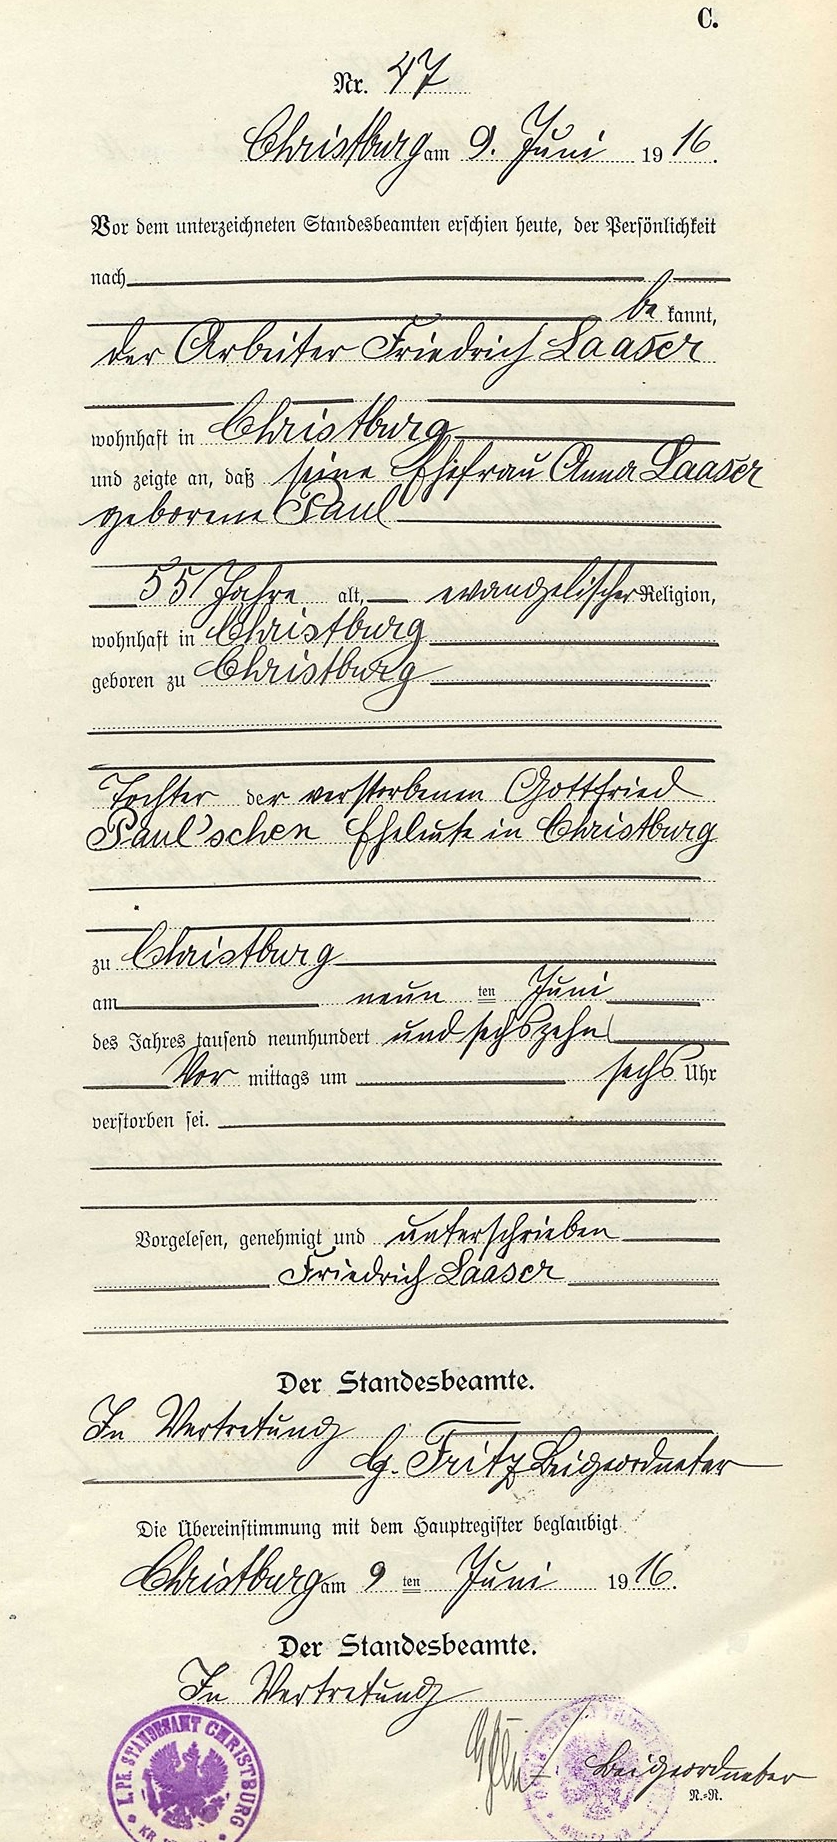 C.
Nr. 47
Christburg am 9. Juni 1916.
Vor dem unterzeichneten Standesbeamten erschien heute, der Persönlichkeit
nach
be kannt,
der Arbeiter Friedrich Laaser
wohnhaft in Christburg
und zeigte an, daß seine Ehefrau Anna Laaser
geborene Paul
55 Jahre alt, evangelischer Religion,
wohnhaft in Christburg
geboren zu Christburg
Tochter der verstorbenen Gottfried
Paul'schen Eheleute in Christburg
zu Christburg
am neun ten Juni
des Jahres tausend neunhundert und sechszehn
Vor mittags um sechs Uhr
verstorben sei.
Vorgelesen, genehmigt und unterschrieben
Friedrich Laaser
Der Standesbeamte.
In Vertretung
G. Fritz Beigeordneter
Die Übereinstimmung mit dem Hauptregister beglaubigt
Christburg am 9 ten Juni 1916.
Der Standesbeamte.
In Vertretung
Beigeordneter
N.-R.
K. PR. STANDESAMT CHRISTBURG
KR.